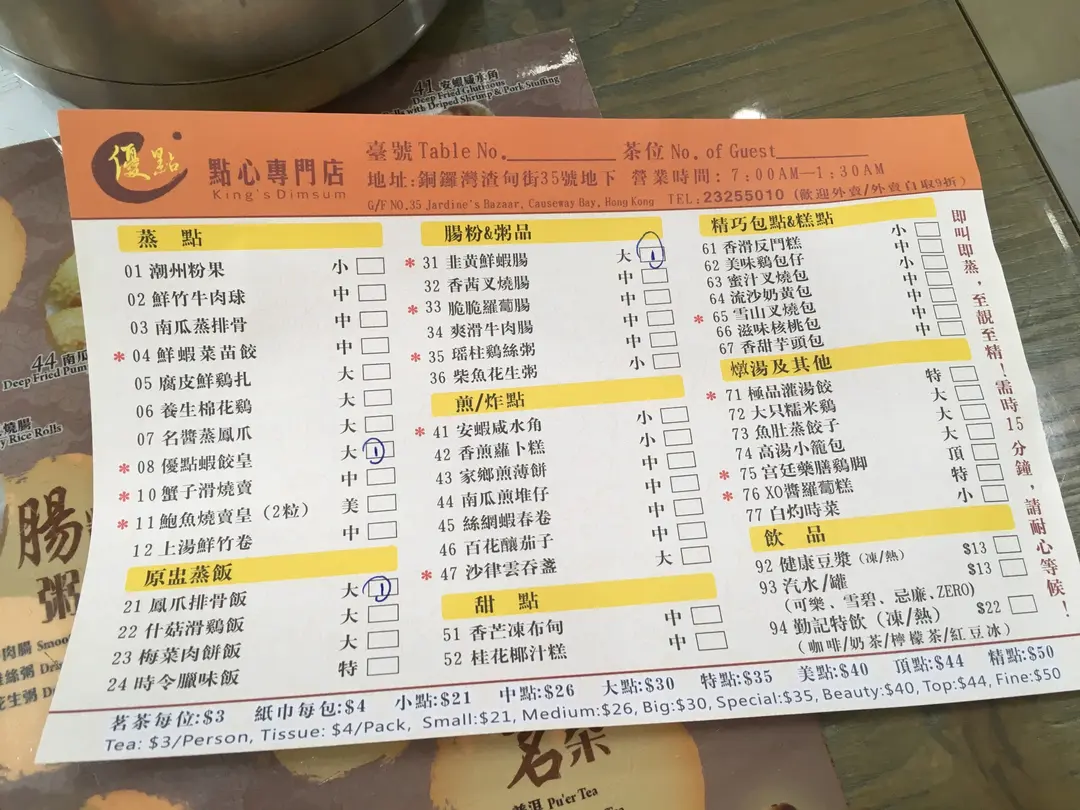 41 安蝦咸水角
Deep Fried Glutinous
Rolls with Driped Shrimp & Pork Stuffing
優點
點心專門店
King's Dimsum
臺號 Table No. 茶位 No. of Guest
地址:銅鑼灣渣甸街35號地下 營業時間:7:00AM—1:30AM
G/F NO,35 Jardine's Bazaar, Causeway Bay, Hong Kong TEL:23255010 (歡迎外賣/外賣自取9折)
蒸 點
01 潮州粉果 小
02 鮮竹牛肉球 中
03 南瓜蒸排骨 中
* 04 鮮蝦菜苗餃 中
05 腐皮鮮鷄扎 大
06 養生棉花鷄 大
07 名醬蒸鳳爪 大
* 08 優點蝦餃皇 大 1
* 10 蟹子滑燒賣 中
* 11 鮑魚燒賣皇 (2粒) 美
12 上湯鮮竹卷 中
原盅蒸飯
21 鳳爪排骨飯 大 1
22 什菇滑鷄飯 大
23 梅菜肉餅飯 大
24 時令臘味飯 特
腸粉&粥品
* 31 韭黃鮮蝦腸 大 1
32 香茜叉燒腸 中
* 33 脆脆羅蔔腸 中
34 爽滑牛肉腸 中
* 35 瑶柱鷄絲粥 中
36 柴魚花生粥 小
煎/炸點
* 41 安蝦咸水角 小
42 香煎蘿卜糕 小
43 家鄉煎薄餅 中
44 南瓜煎堆仔 中
45 絲網蝦春卷 中
46 百花釀茄子 中
* 47 沙律雲吞盞 大
甜 點
51 香芒凍布甸 中
52 桂花椰汁糕 中
精巧包點&糕點
61 香滑反鬥糕 小
62 美味鷄包仔 中
63 蜜汁叉燒包 小
64 流沙奶黃包 中
* 65 雪山叉燒包 中
66 滋味核桃包 中
67 香甜芋頭包 中
燉湯及其他
* 71 極品灌湯餃 特
72 大只糯米鷄 大
73 魚肚蒸餃子 大
74 高湯小籠包 大
* 75 宮廷藥膳鷄脚 頂
* 76 XO醬羅蔔糕 特
77 白灼時菜 小
飲 品
92 健康豆漿 (凍/熱) $13
93 汽水/罐 $13
(可樂、雪碧、忌廉、ZERO)
94 勤記特飲 (凍/熱) $22
(咖啡/奶茶/檸檬茶/紅豆冰)
即叫即蒸，至靚至精！需時15分鐘，請耐心等候！
茗茶每位:$3 紙巾每包:$4 小點:$21 中點:$26 大點:$30 特點:$35 美點:$40 頂點:$44 精點:$50
Tea: $3/Person, Tissue: $4/Pack, Small:$21, Medium:$26, Big:$30, Special:$35, Beauty:$40, Top:$44, Fine:$50
44 南瓜
Deep Fried Pum
燒腸
Rice Rolls
腸
粥
肉腸 Smoo
絲粥
花生粥
茗茶
普洱 Pu'er Tea